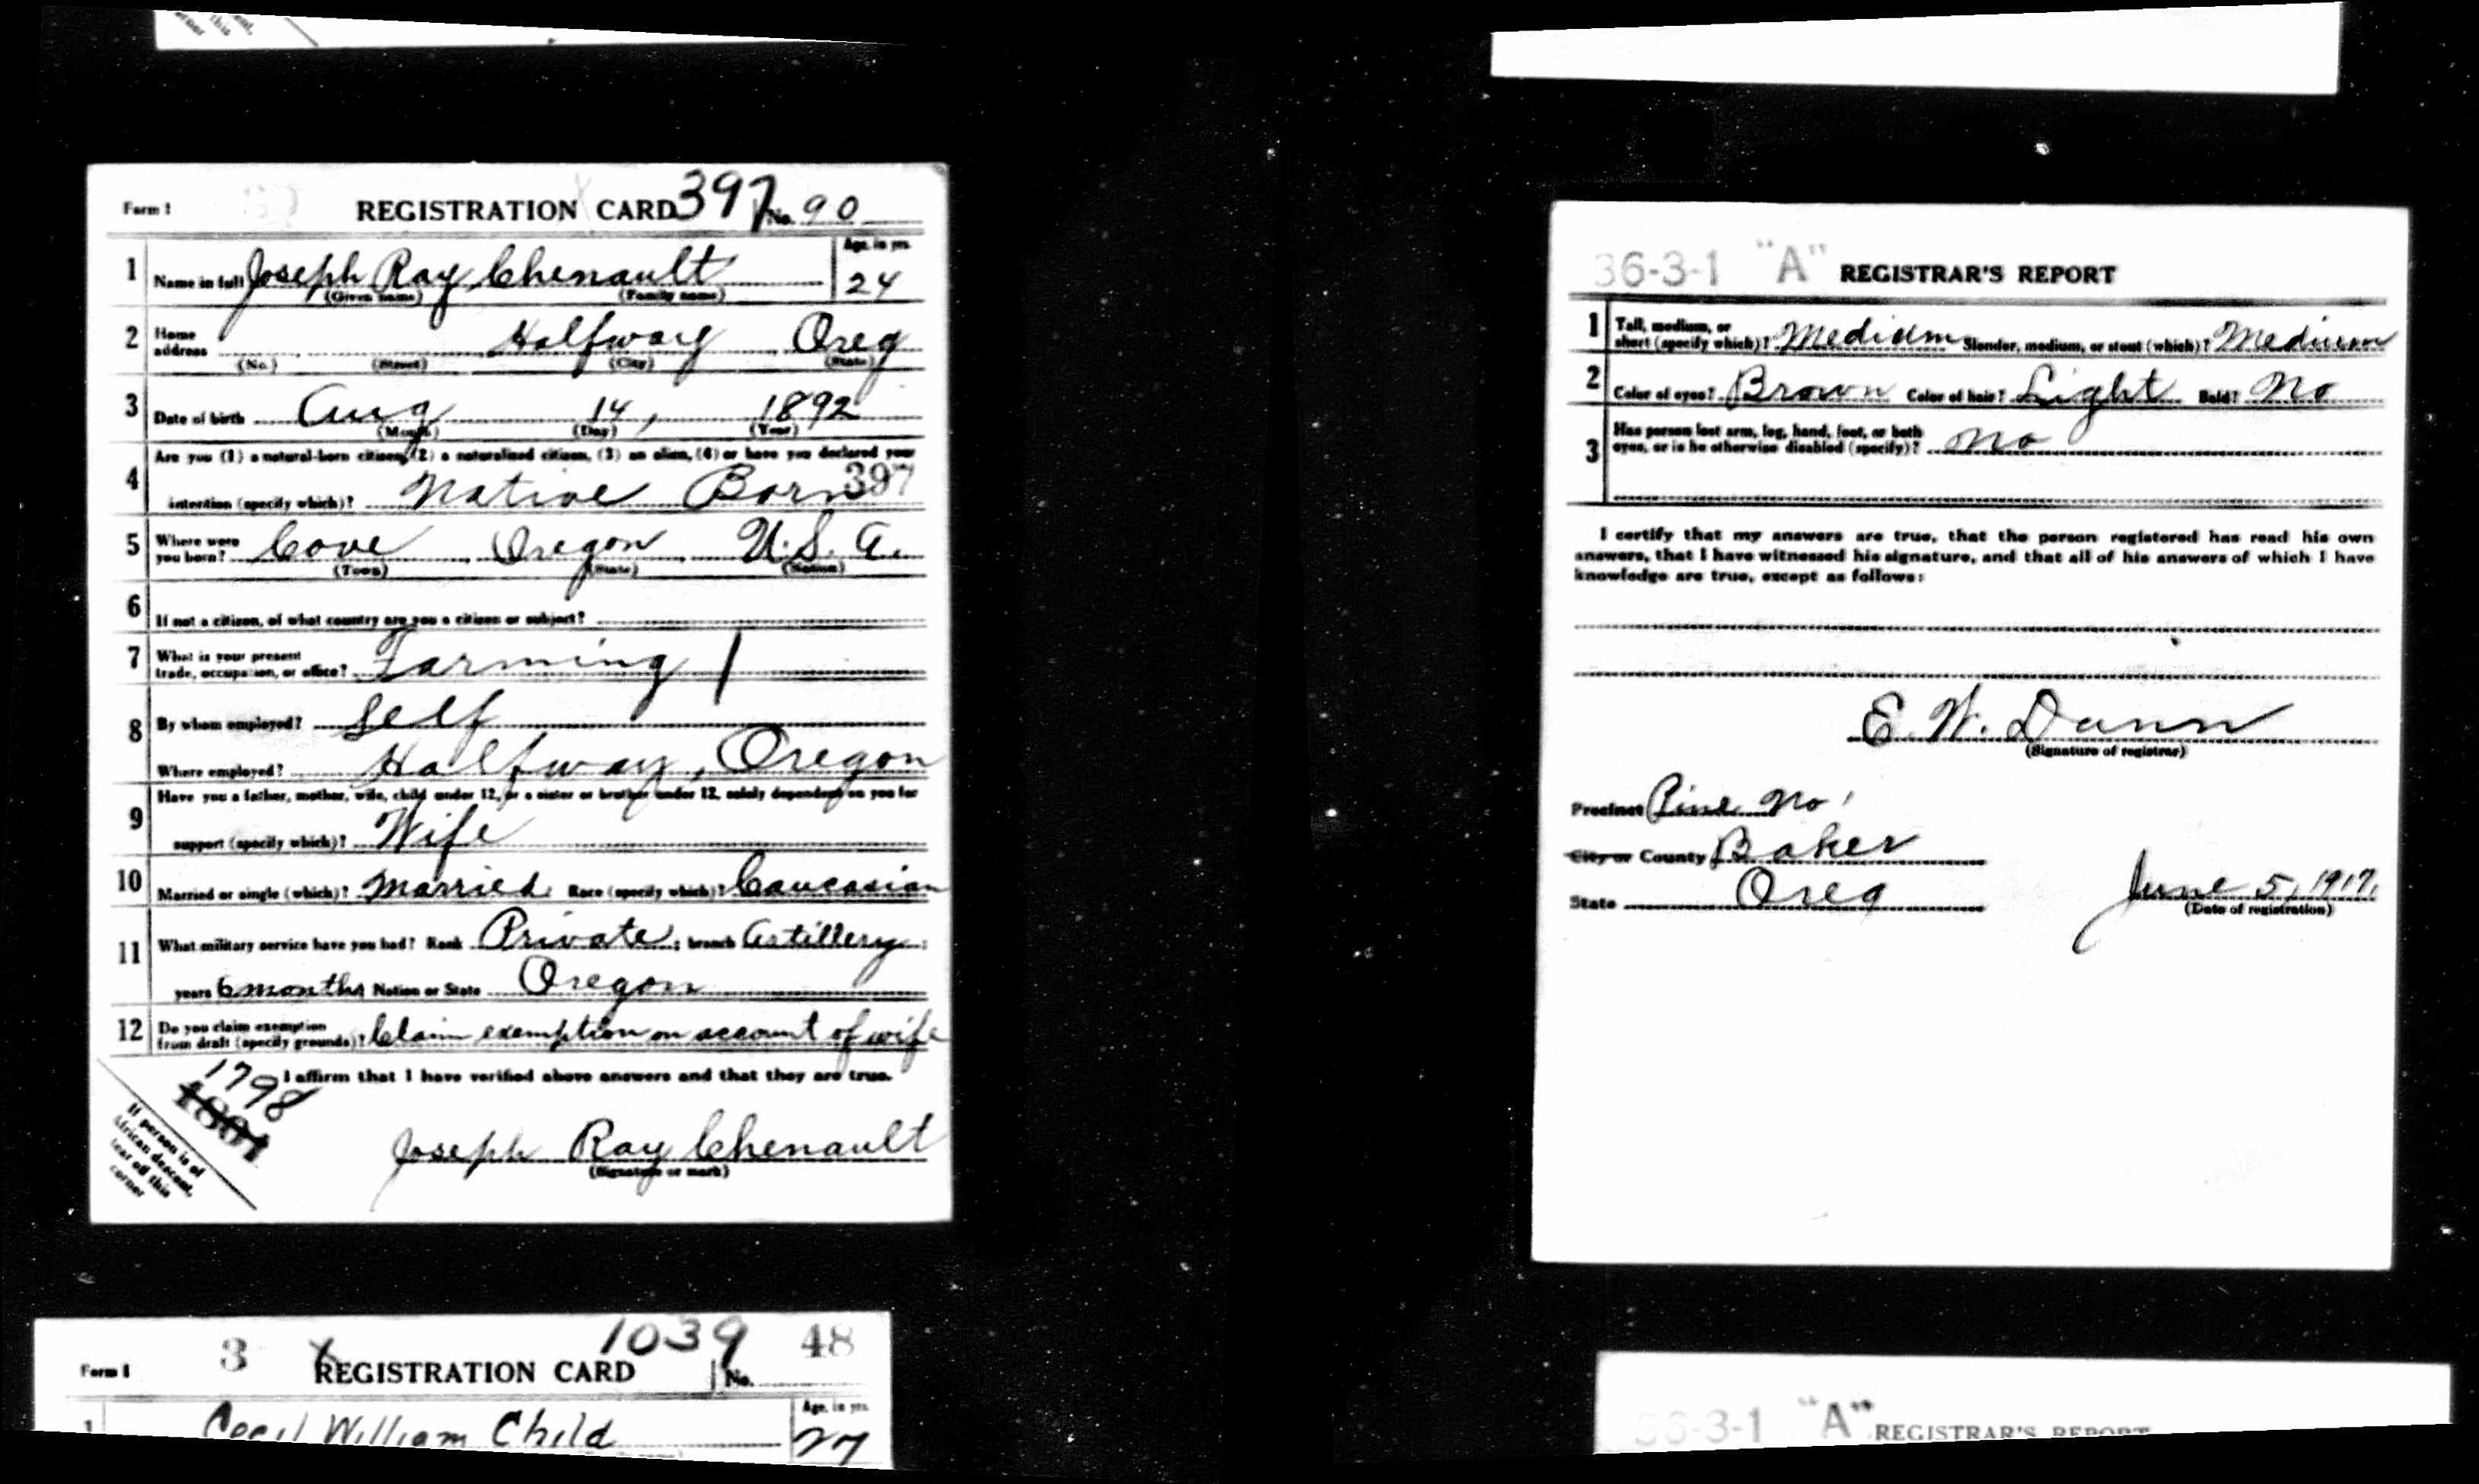 Form 1 REGISTRATION CARD 397 No. 90
1 Name in full Joseph Ray Chenault Age, in yrs. 24
(Given name) (Family name)
2 Home address Halfway Oreg
(No.) (Street) (City) (State)
3 Date of birth Aug 14, 1892
(Month) (Day) (Year)
Are you (1) a natural-born citizen, (2) a naturalized citizen, (3) an alien, (4) or have you declared your
4 intention (specify which)? Native Born 397
5 Where were you born? Cove Oregon U.S.A.
(Town) (State) (Nation)
6 If not a citizen, of what country are you a citizen or subject?
7 What is your present trade, occupation, or office? Farming
8 By whom employed? Self
Where employed? Halfway, Oregon
Have you a father, mother, wife, child under 12, or a sister or brother under 12, solely dependent on you for
9 support (specify which)? Wife
10 Married or single (which)? Married Race (specify which)? Caucasian
11 What military service have you had? Rank Private; branch Artillery;
years 6 months Nation or State Oregon
12 Do you claim exemption from draft (specify grounds)? Claim exemption on account of wife
I affirm that I have verified above answers and that they are true.
1798
1801
Joseph Ray Chenault
(Signature or mark)
If person is of
African descent,
tear off this
corner
3 1039 48
Form 1 REGISTRATION CARD No.
1 Cecil William Child Age, in yrs. 27
36-3-1 "A" REGISTRAR'S REPORT
1 Tall, medium, or short (specify which)? Medium Slender, medium, or stout (which)? Medium
2 Color of eyes? Brown Color of hair? Light Bald? No
3 Has person lost arm, leg, hand, foot, or both eyes, or is he otherwise disabled (specify)? No
I certify that my answers are true, that the person registered has read his own
answers, that I have witnessed his signature, and that all of his answers of which I have
knowledge are true, except as follows:
E. W. Dunn
(Signature of registrar)
Precinct Pine No 1
City or County Baker
State Oreg
June 5, 1917.
(Date of registration)
36-3-1 "A" REGISTRAR'S REPORT